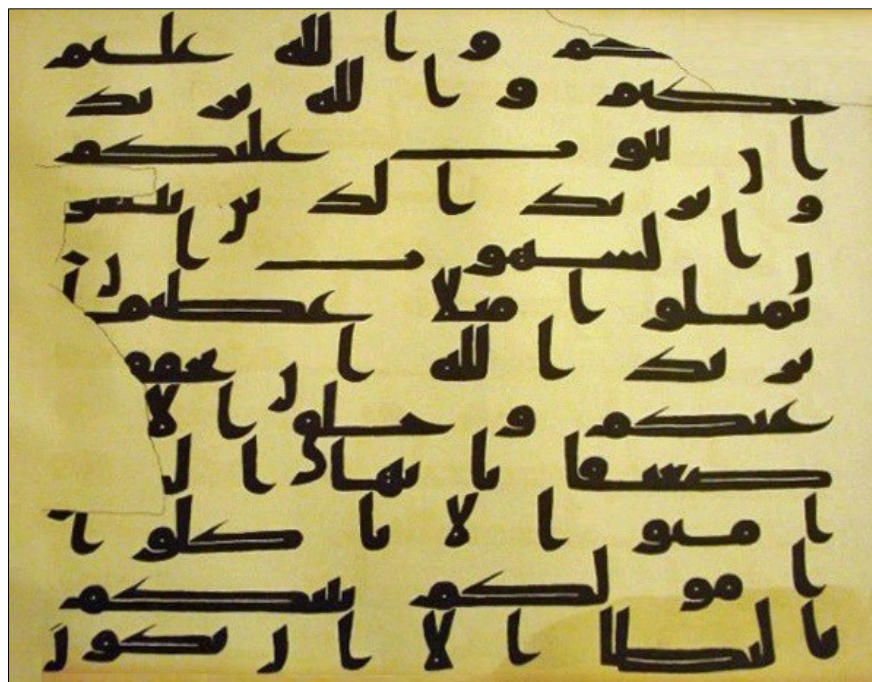 كم والله عليم
حكيم والله يريد
ان يتوب عليكم
ويريد الذين يتبعو
ن الشهوت ان
تميلوا ميلا عظيما
يريد الله ان يخفف
عنكم وخلق الا
ضعيفا يايها الذ
امنوا لا تاكلوا
امولكم بينكم
بالبطل الا ان تكون